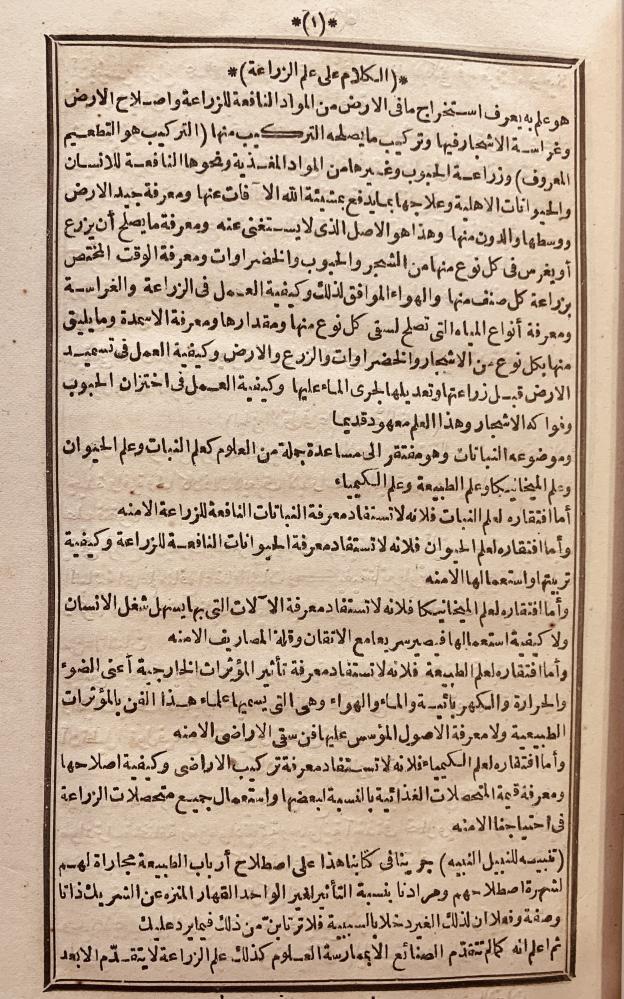 *(١)*
*(الكلام على علم الزراعة)*
هو علم به يعرف استخراج ما فى الارض من المواد النافعة للزراعة واصلاح الارض
وغراسة الاشجار فيها وتركيب ما يصلحه التركيب منها (التركيب هو التطعيم
المعروف) وزراعة الحبوب وغيرها من المواد المغذية ونحوها النافعة للانسان
والحيوانات الاهلية وعلاجها بما يدفع بمشيئة الله الآفات عنها ومعرفة جيد الارض
ووسطها والدون منها وهذا هو الاصل الذى لايستغنى عنه ومعرفة ما يصلح أن يزرع
أو يغرس فى كل نوع منها من الشجر والحبوب والخضراوات ومعرفة الوقت المختص
بزراعة كل صنف منها والهواء الموافق لذلك وكيفية العمل فى الزراعة والغراسة
ومعرفة أنواع المياه التى تصلح لسقى كل نوع منها ومقدارها ومعرفة الاسمدة وما يليق
منها بكل نوع من الاشجار والخضراوات والزرع والارض وكيفية العمل فى تسميد
الارض قبل زراعتها وتعديلها لجرى الماء عليها وكيفية العمل فى اختزان الحبوب
وفواكه الاشجار وهذا العلم معهود قديما
وموضوعه النباتات وهو مفتقر الى مساعدة جملة من العلوم كعلم النبات وعلم الحيوان
وعلم الميخانيكا وعلم الطبيعة وعلم الكيمياء
أما افتقاره لعلم النبات فلانه لا تستفاد معرفة النباتات النافعة للزراعة الامنه
وأما افتقاره لعلم الحيوان فلانه لا تستفاد معرفة الحيوانات النافعة للزراعة وكيفية
تربيتها واستعمالها الامنه
وأما افتقاره لعلم الميخانيكا فلانه لا تستفاد معرفة الآلات التى بها يسهل شغل الانسان
ولا كيفية استعمالها فيصير سريعا مع الاتقان وقلة المصاريف الامنه
وأما افتقاره لعلم الطبيعة فلانه لا تستفاد معرفة تأثير المؤثرات الخارجية أعنى الضوء
والحرارة والكهربائية والماء والهواء وهى التى يسميها علماء هذا الفن بالمؤثرات
الطبيعية ولا معرفة الاصول المؤسس عليها فن سقى الاراضى الامنه
وأما افتقاره لعلم الكيمياء فلانه لا تستفاد معرفة تركيب الاراضى وكيفية اصلاحها
ومعرفة قيمة المتحصلات الغذائية بالنسبة لبعضها واستعمال جميع متحصلات الزراعة
فى احتياجنا الامنه
(تنبيه للنبيل النبيه) جرينا فى كتابنا هذا على اصطلاح أرباب الطبيعة مجاراة لهم
لشهرة اصطلاحهم ومرادنا بنسبة التأثير لغير الواحد القهار المنزه عن الشريك ذاتا
وصفة وفعلا ان لذلك الغير دخلا بالسببية فلا ترتابن من ذلك فيما يرد عليك
ثم اعلم انه كما لم تتقدم الصنائع الا بممارسة العلوم كذلك علم الزراعة لا يتقدم الا بعد